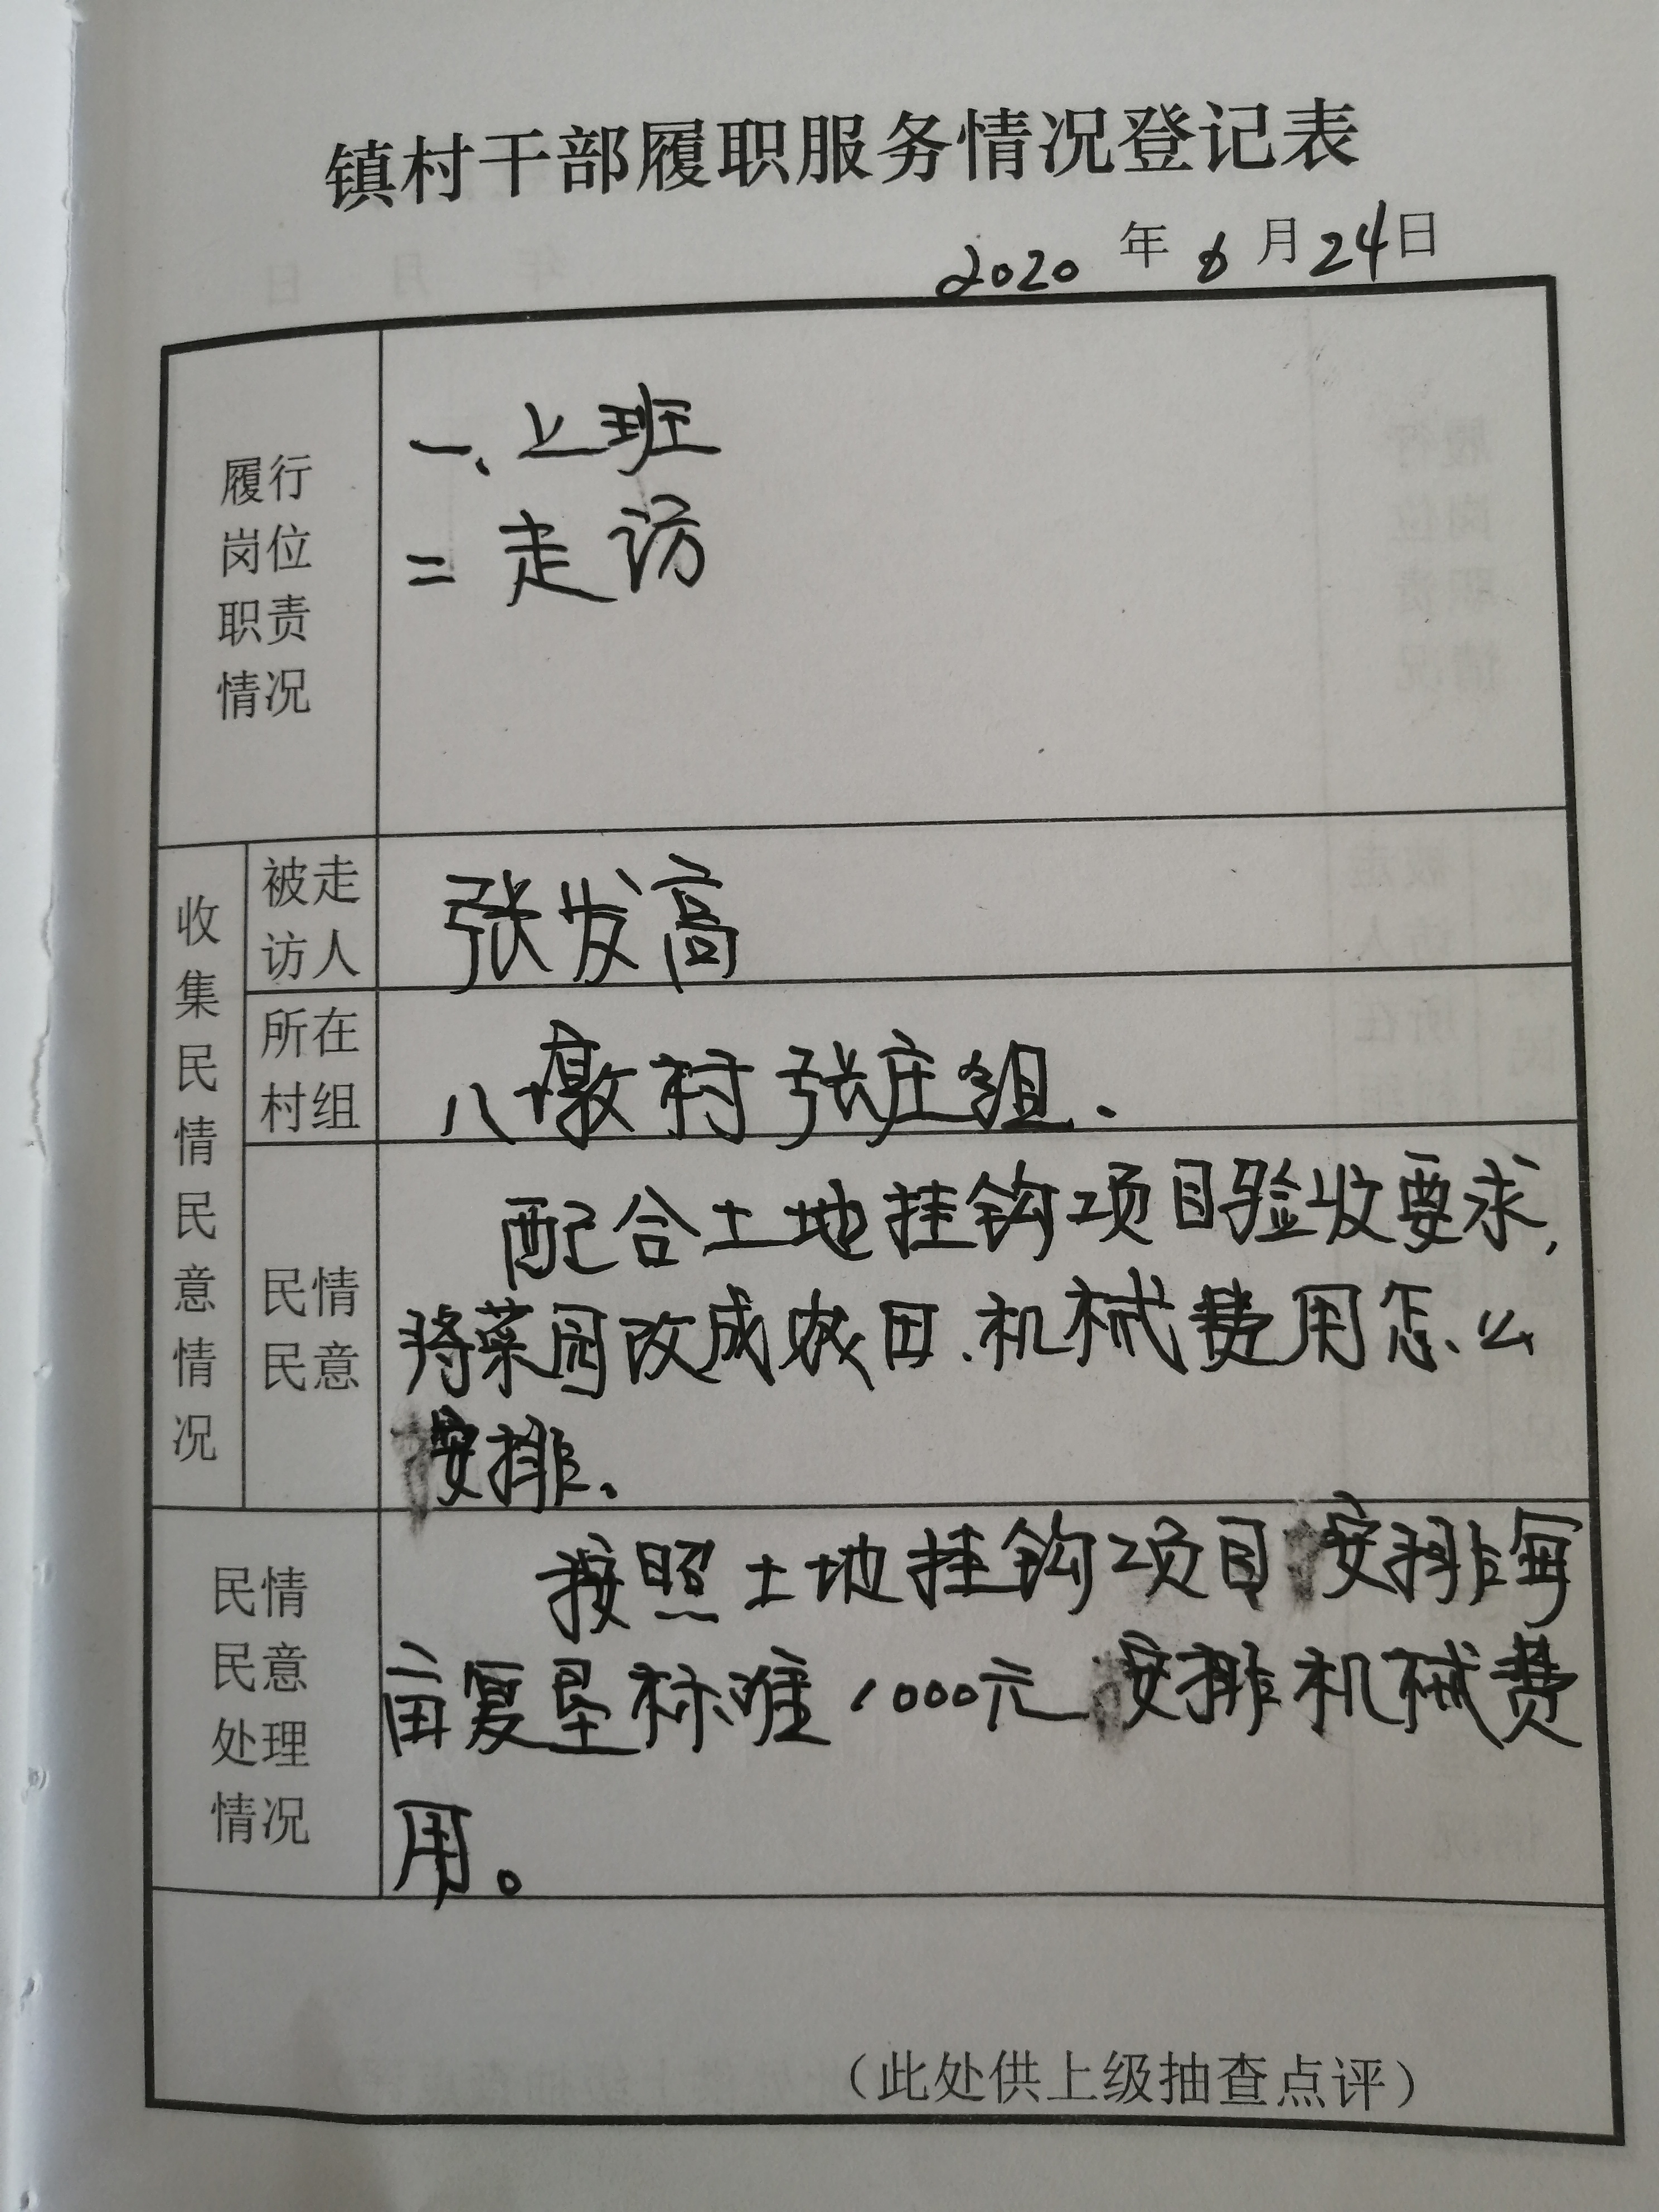 镇村干部履职服务情况登记表
2020年6月24日
履行
岗位
职责
情况
一、上班
二 走访
收集民情民意情况
被走
访人
张发高
所在
村组
八墩村张庄组.
民情
民意
配合土地挂钩项目验收要求,
将菜园改成农田.机械费用怎么
安排.
民情
民意
处理
情况
按照土地挂钩项目安排每
亩复垦标准1000元安排机械费
用。
（此处供上级抽查点评）